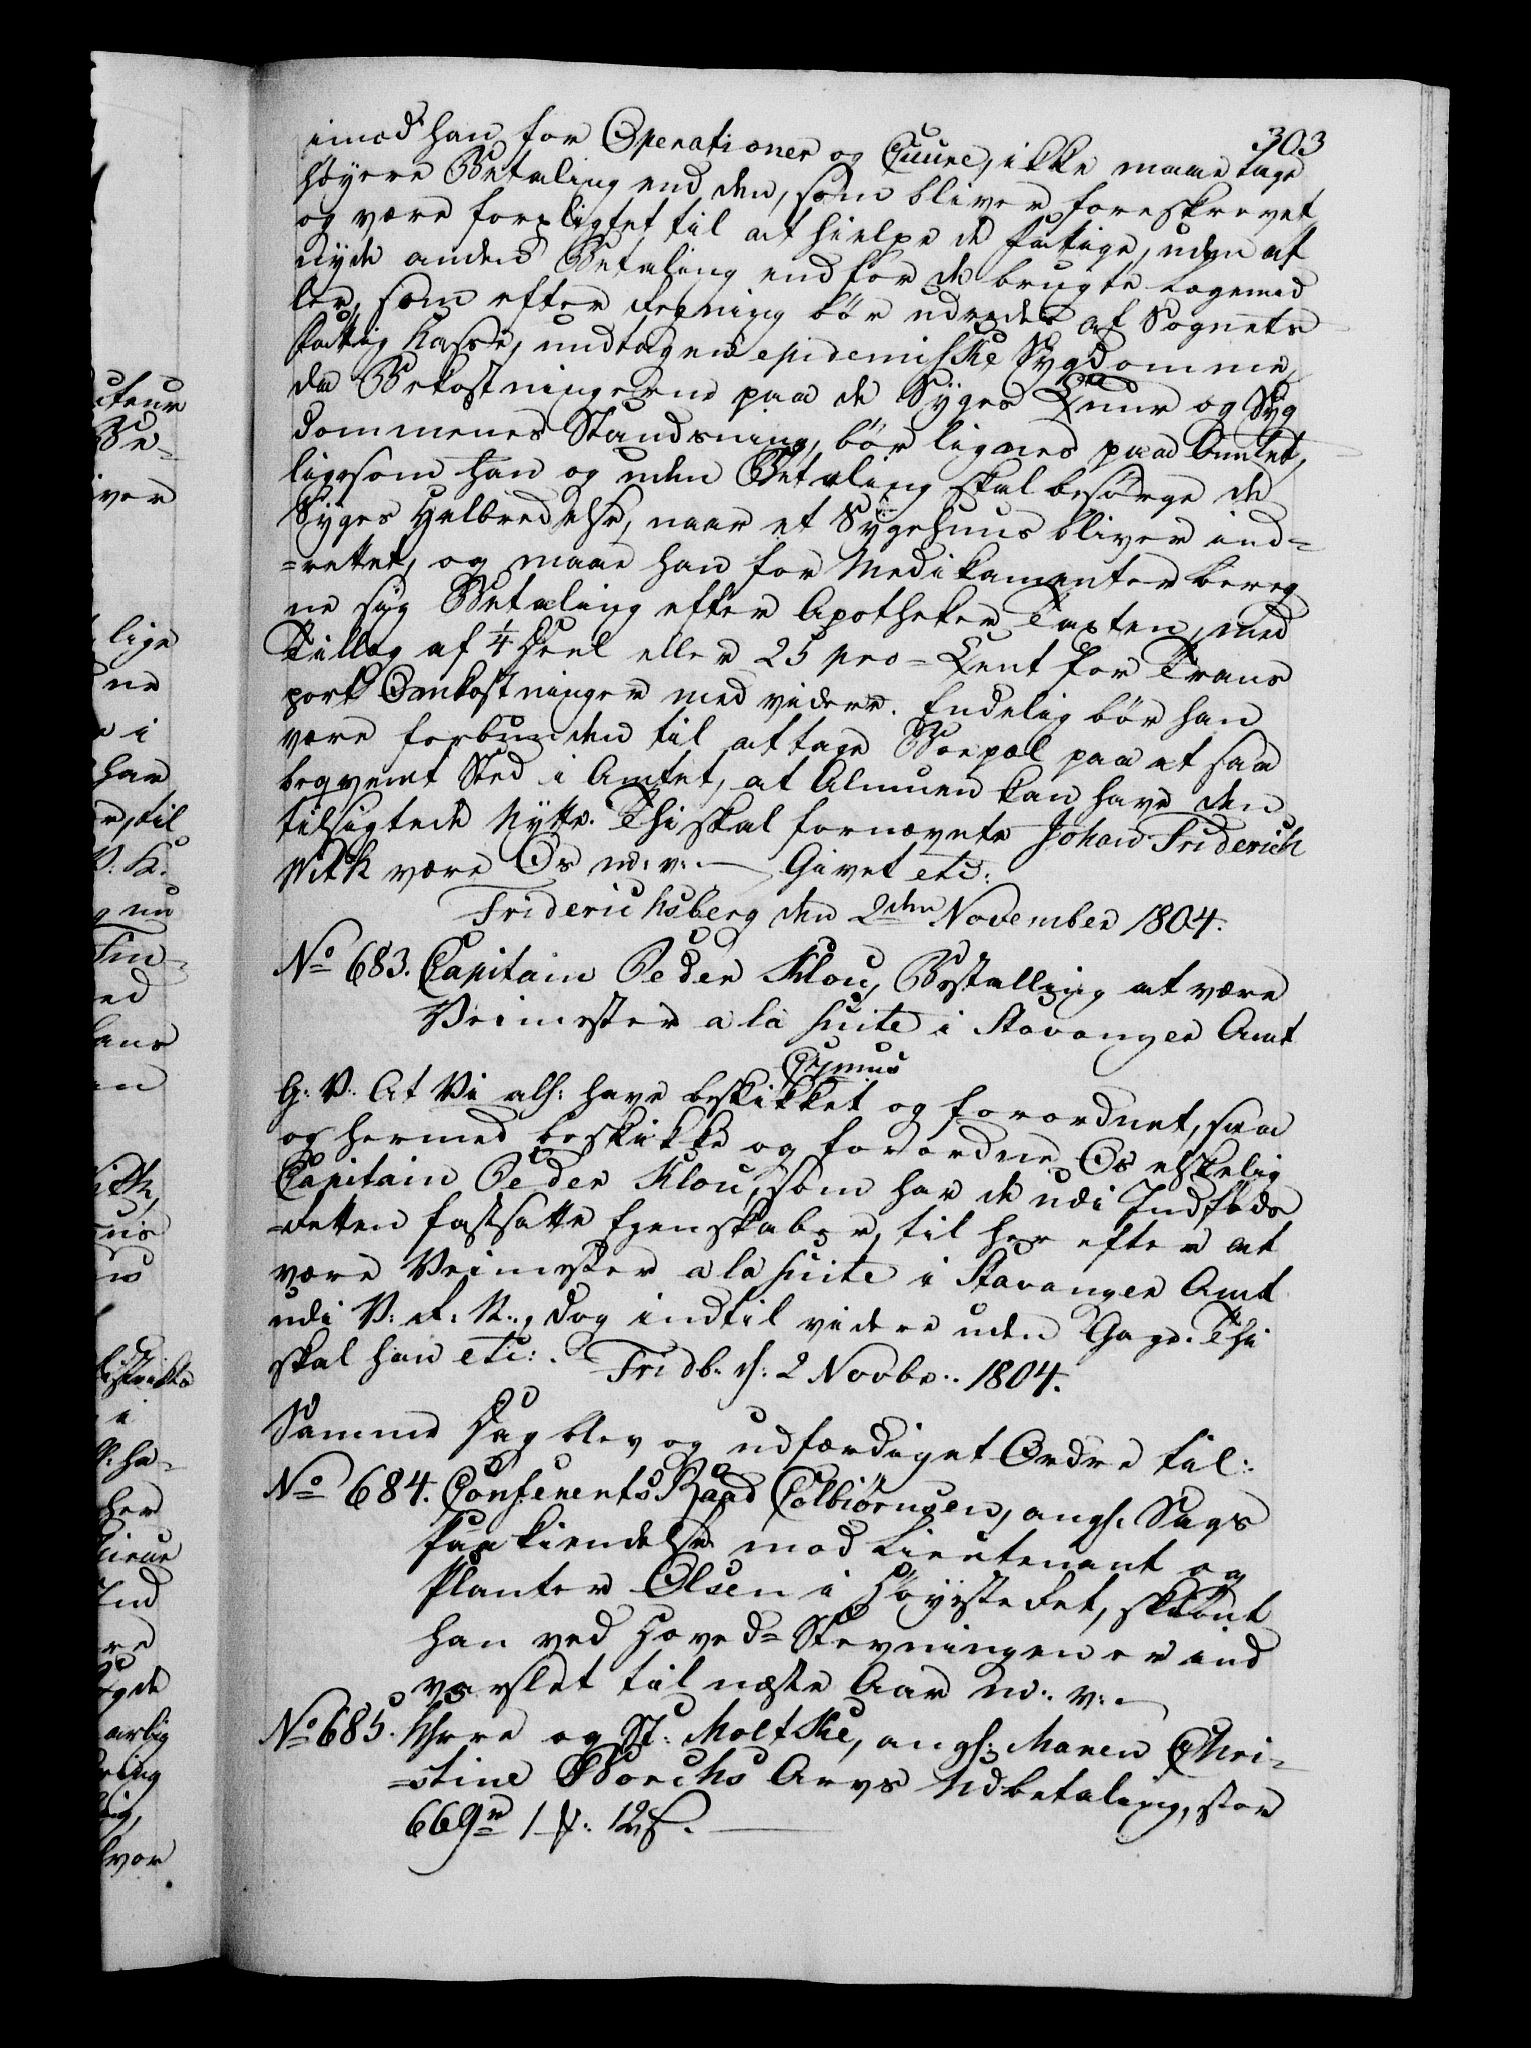 303
imod han for Operationer og Cuure, ikke maae tage
høyere Betaling end den, som bliver foreskrevet
og være forpligtet til at hielpe de fattige, uden at
nyde anden Betaling end for de brugte Lægemid
ler, som efter Regning bör udredes af Sognets
Fattig Kasse, undtagen epidemiske Sygdomme,
da Bekostningerne paa de Syges Cuur og Syg
dommenes Standsning, bör lignes paa Amtet,
ligesom han og uden Betaling skal besörge de
Syges Helbredelse, naar et Sygehuus bliver ind=
=rettet, og maae han for Medikamenter bereg
ne sig Betaling efter Apotheker Taxten, med
Tillæg af 1/4 Deel eller 25 pro=Cent for Trans
port Omkostninger med videre. Endelig bör han
være forbunden til at tage Boepæl paa et saa
beqvemt Sted i Amtet, at Almuen kan have den
tilsigtede Nytte. Thi skal fornævnte Johan Friderich
Witk være Os m: v: — Givet etc:
Friderichsberg den 2den November 1804.
No 683. Capitain Peder Klou, Bestalling at være
Veimester a la suite i Stavanger Amt
Gr̄mus
G: V: At Vi als: have beskikket og forordnet, saa
og hermed beskikke og forordne Os elskelig
Capitain Peder Klou, som har de udi Indföds
=Retten fastsatte Egenskaber, til her efter at
være Veimester a la suite i Stavanger Amt
udi V: R: N:, dog indtil videre uden Gage. Thi
skal han etc:. Fridb. d: 2 Novbr. 1804.
Samme Dag blev og udfærdiget Ordre til:
No 684. Conferents Raad Colbiörnsen, angl. Sags
Paakiendelse mod Lieutenant og
Planter Olsen i Høyeste Ret, skiönt
han ved Hoved=Stevningen er ind
varslet til næste Aar m: v:
No 685. Khre og St: Moltke, angl: Maren Chri=
=stine Borchs Arvs Udbetaling, stor
669 rd 1 ₰: 12 ß. —